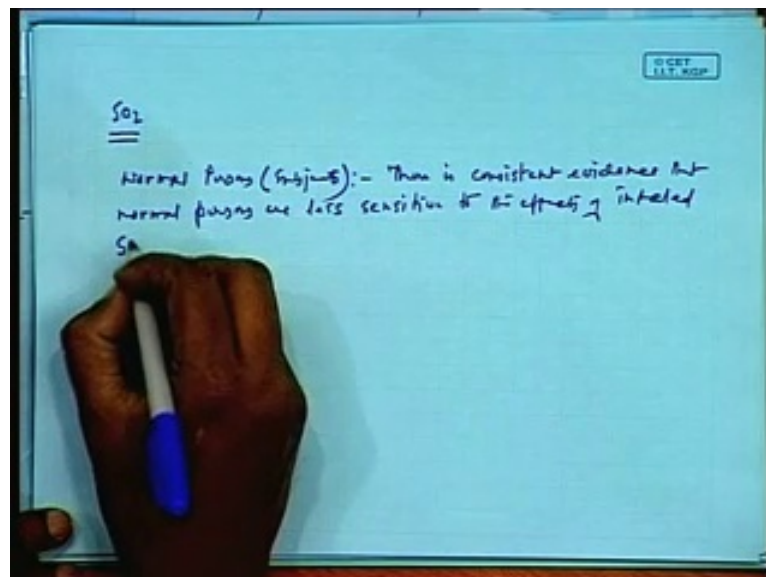 © CET
I.I.T. KGP
SO2
Normal Persons (Subjects):- There is consistent evidence that
normal persons are less sensitive to the effects of inhaled
SO